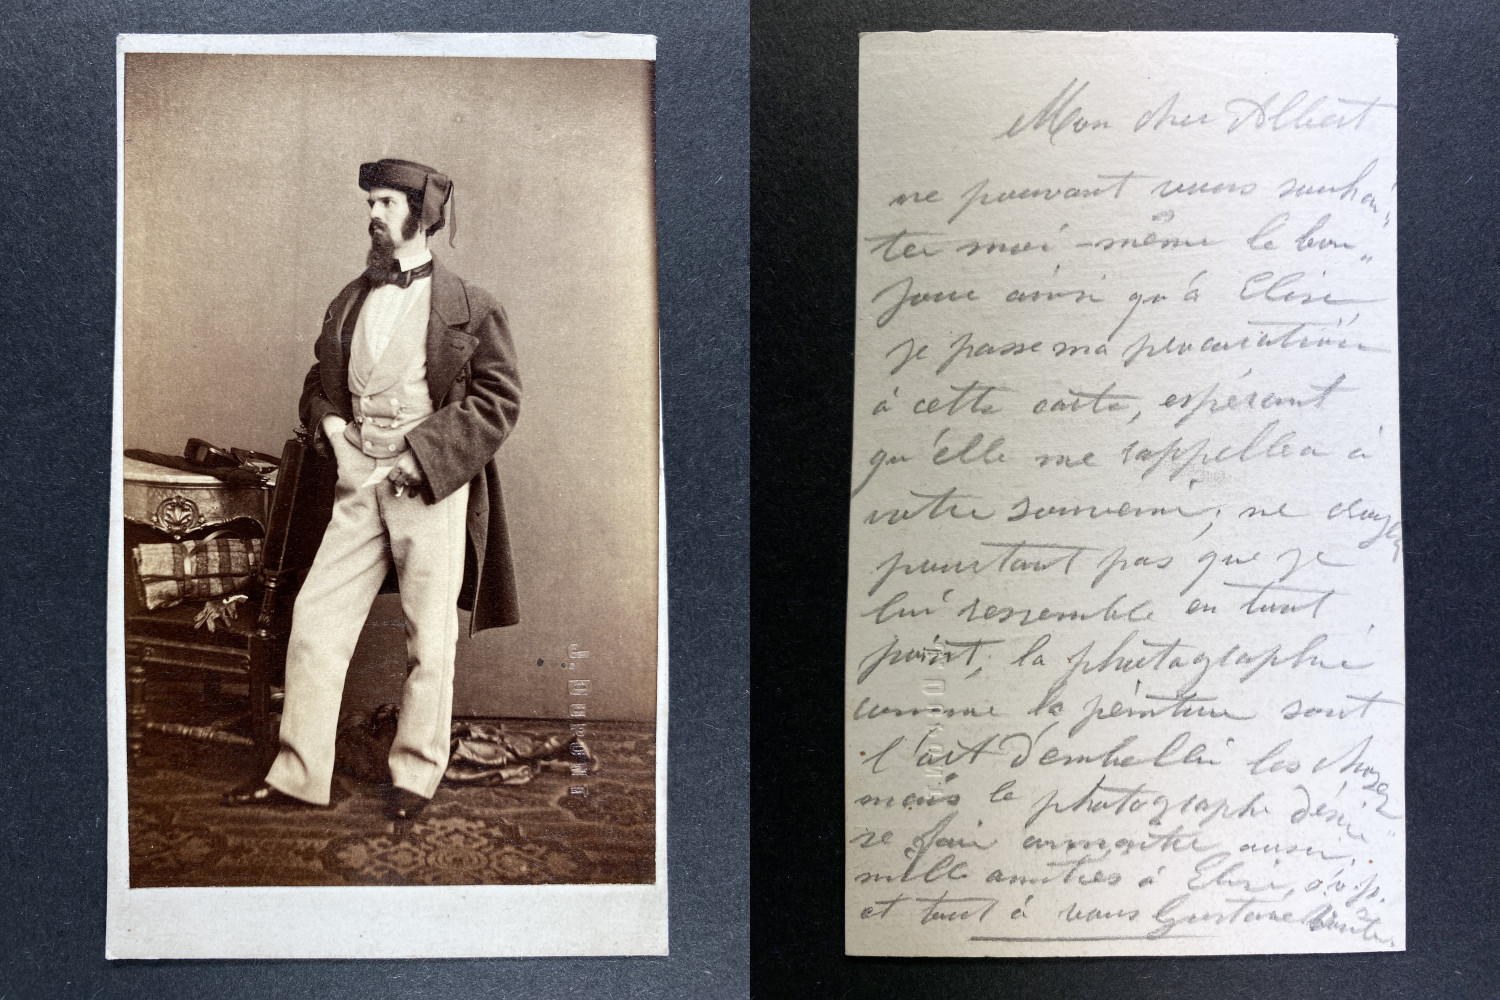 J. DUPONT
Mon cher Albert
ne pouvant vous souhai
ter moi-même le bon"
jour ainsi qu'à Elise
je passe ma procuration
à cette carte, espérant
qu'elle me rappellera à
votre souvenir, ne croyez
pourtant pas que je
lui ressemble en tout
point, la photographie
comme la peinture sont
l'art d'embellir les choses
mais le photographe désire"
se fair connaître aussi.
mille amitiés à Elise, s.v.p.
et tout à vous Gustave